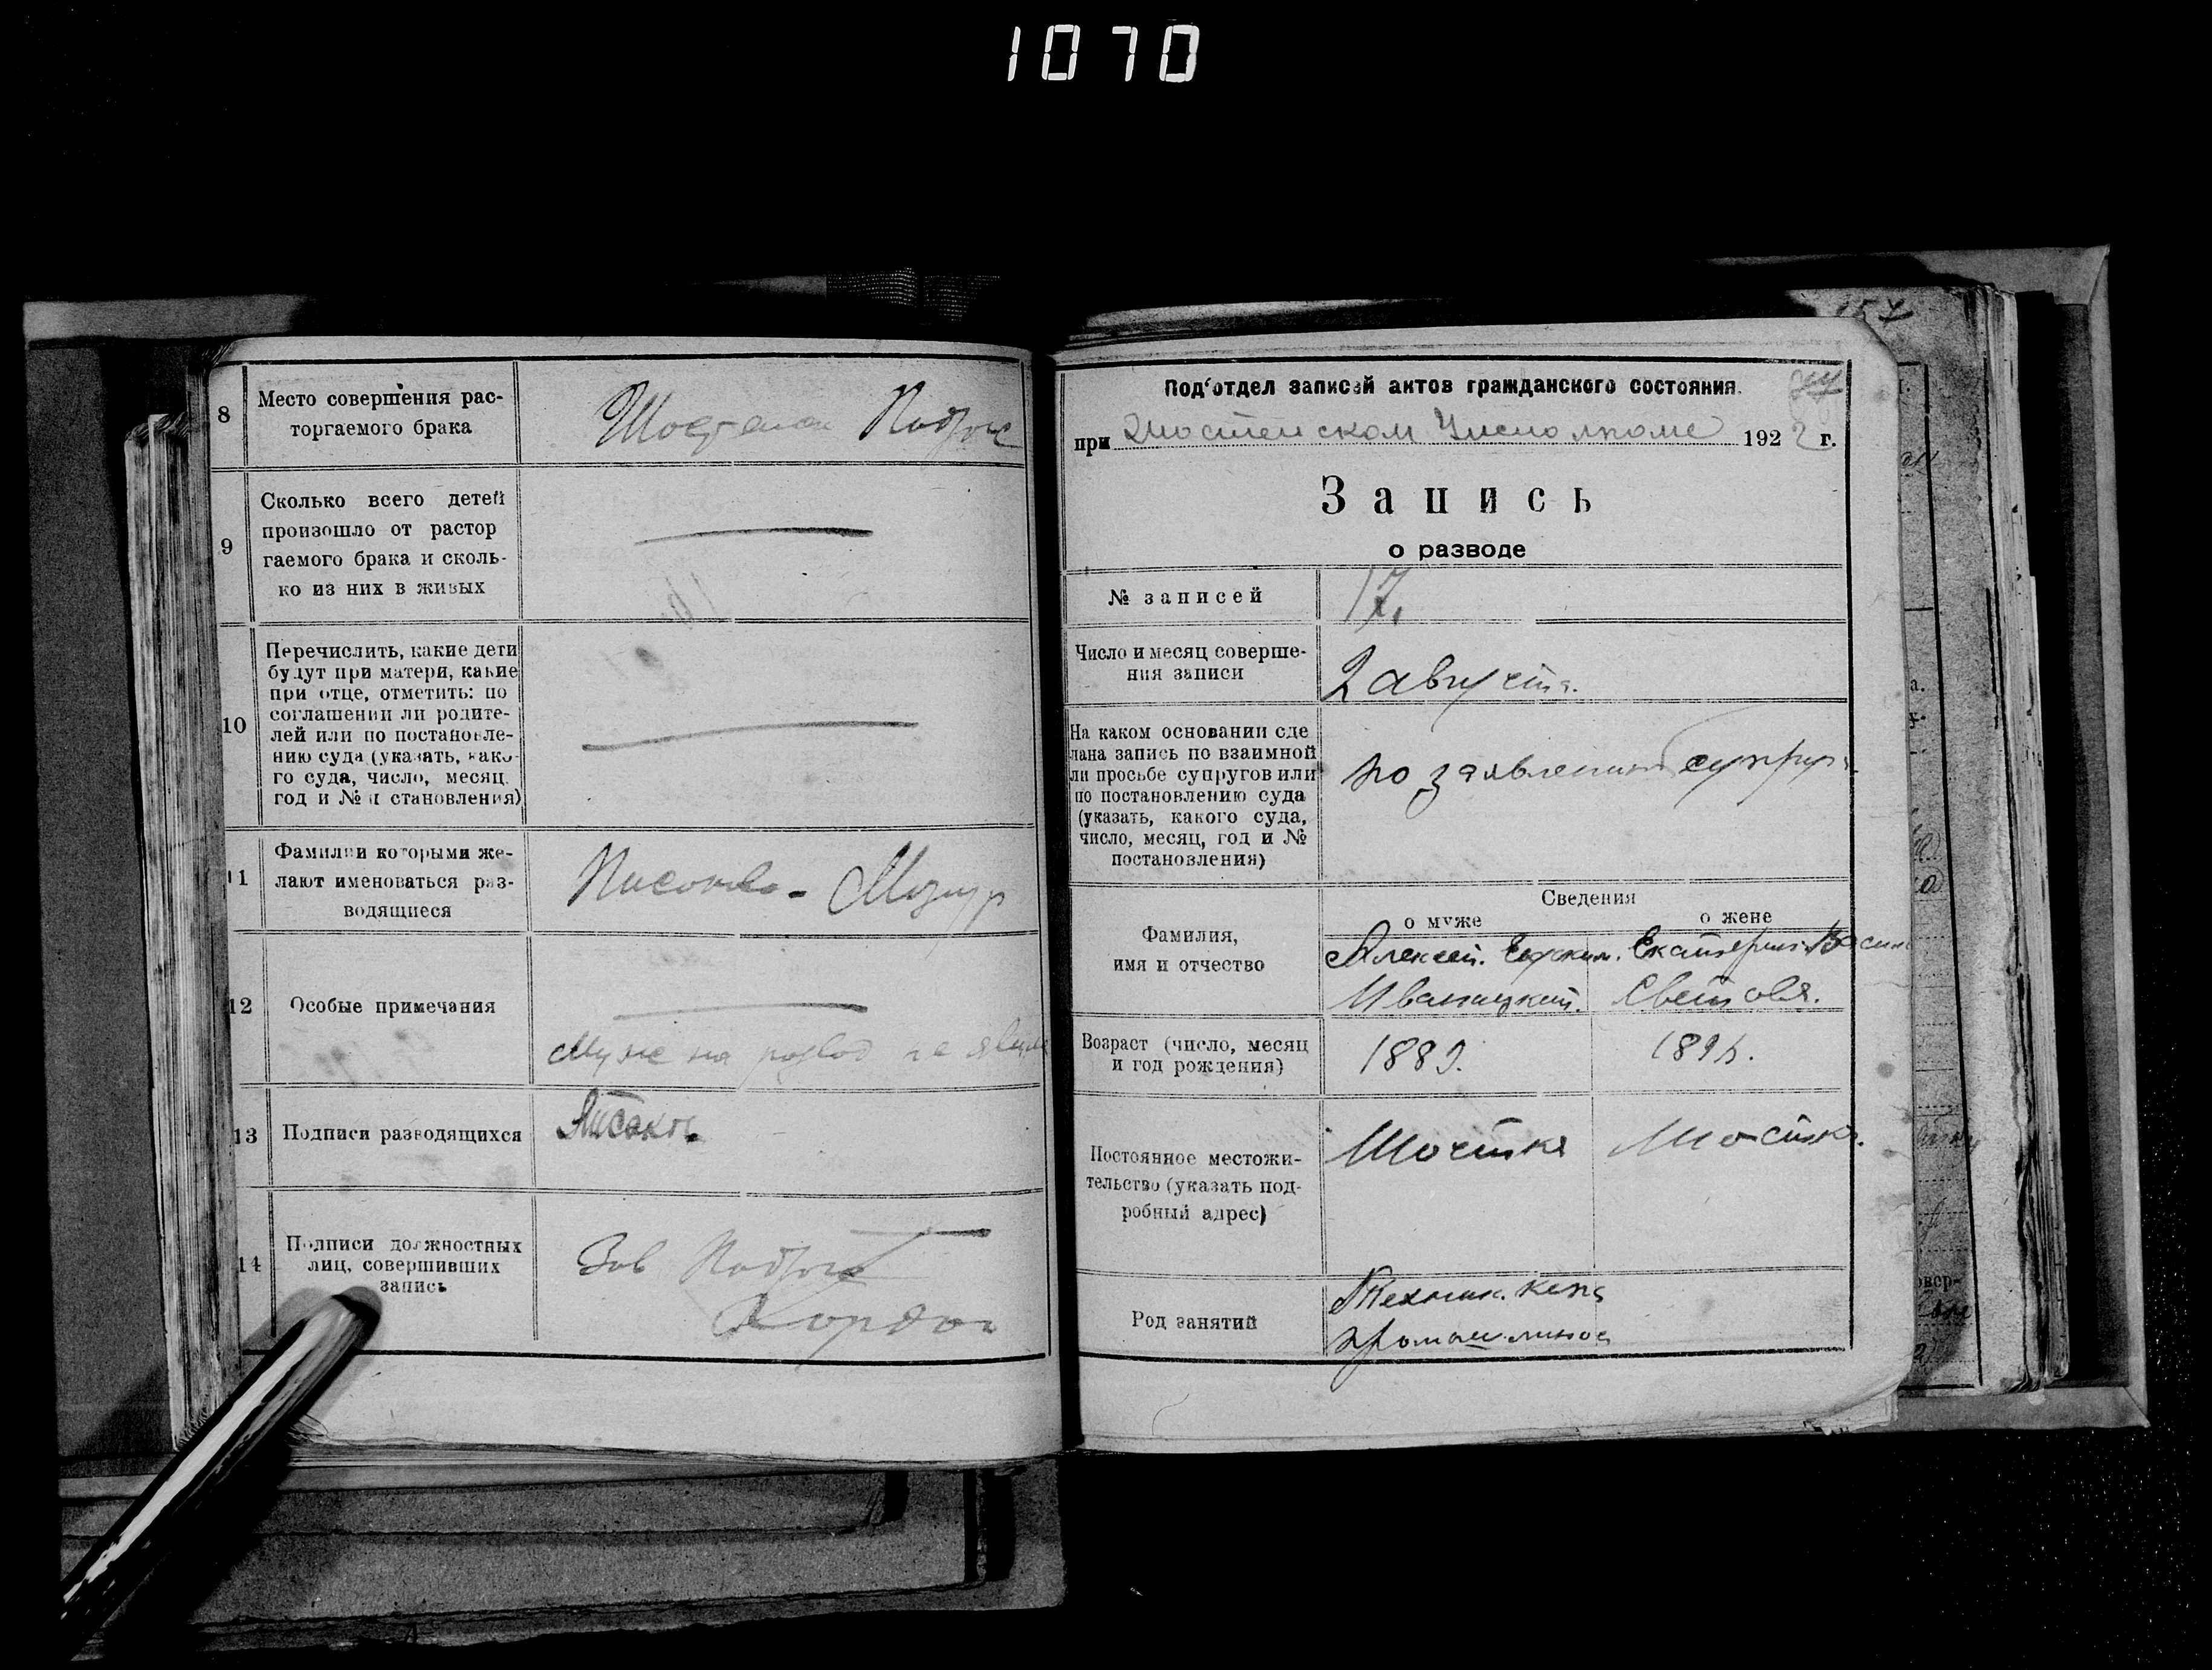 1070
8
Место совершения рас-
торгаемого брака
9
Сколько всего детей
произошло от растор
гаемого брака и сколь-
ко из них в живых
10
Перечислить, какие дети
будут при матери, какие
при отце, отметить: по
соглашении ли родите-
лей или по постановле-
нию суда (указать, како-
го суда, число, месяц.
год и № п становления)
11
Фамилии которыми же-
лают именоваться раз-
водящиеся
Мазур
12
Особые примечания
Муж на развод не
13
Подписи разводящихся
14
Подписи должностных
лиц, совершивших
запись
Зав
Под‘отдел записей актов гражданского состояния.
при Шостенском Исполкоме 1922 г.
Запись
о разводе
№ записей
17.
Число и месяц соверше-
ния записи
2 августа.
На каком основании сде
лана запись по взаимной
ли просьбе супругов или
по постановлению суда
(указать, какого суда,
число, месяц, год и №
постановления)
по заявлению
Сведения
о муже
о жене
Фамилия,
имя и отчество
Алексей.
Иваницкий.
Светова.
Возраст (число, месяц
и год рождения)
1889.
Постоянное местожи-
тельство (указать под-
робный адрес)
Шостка
Шостка.
Род занятий
Техник.